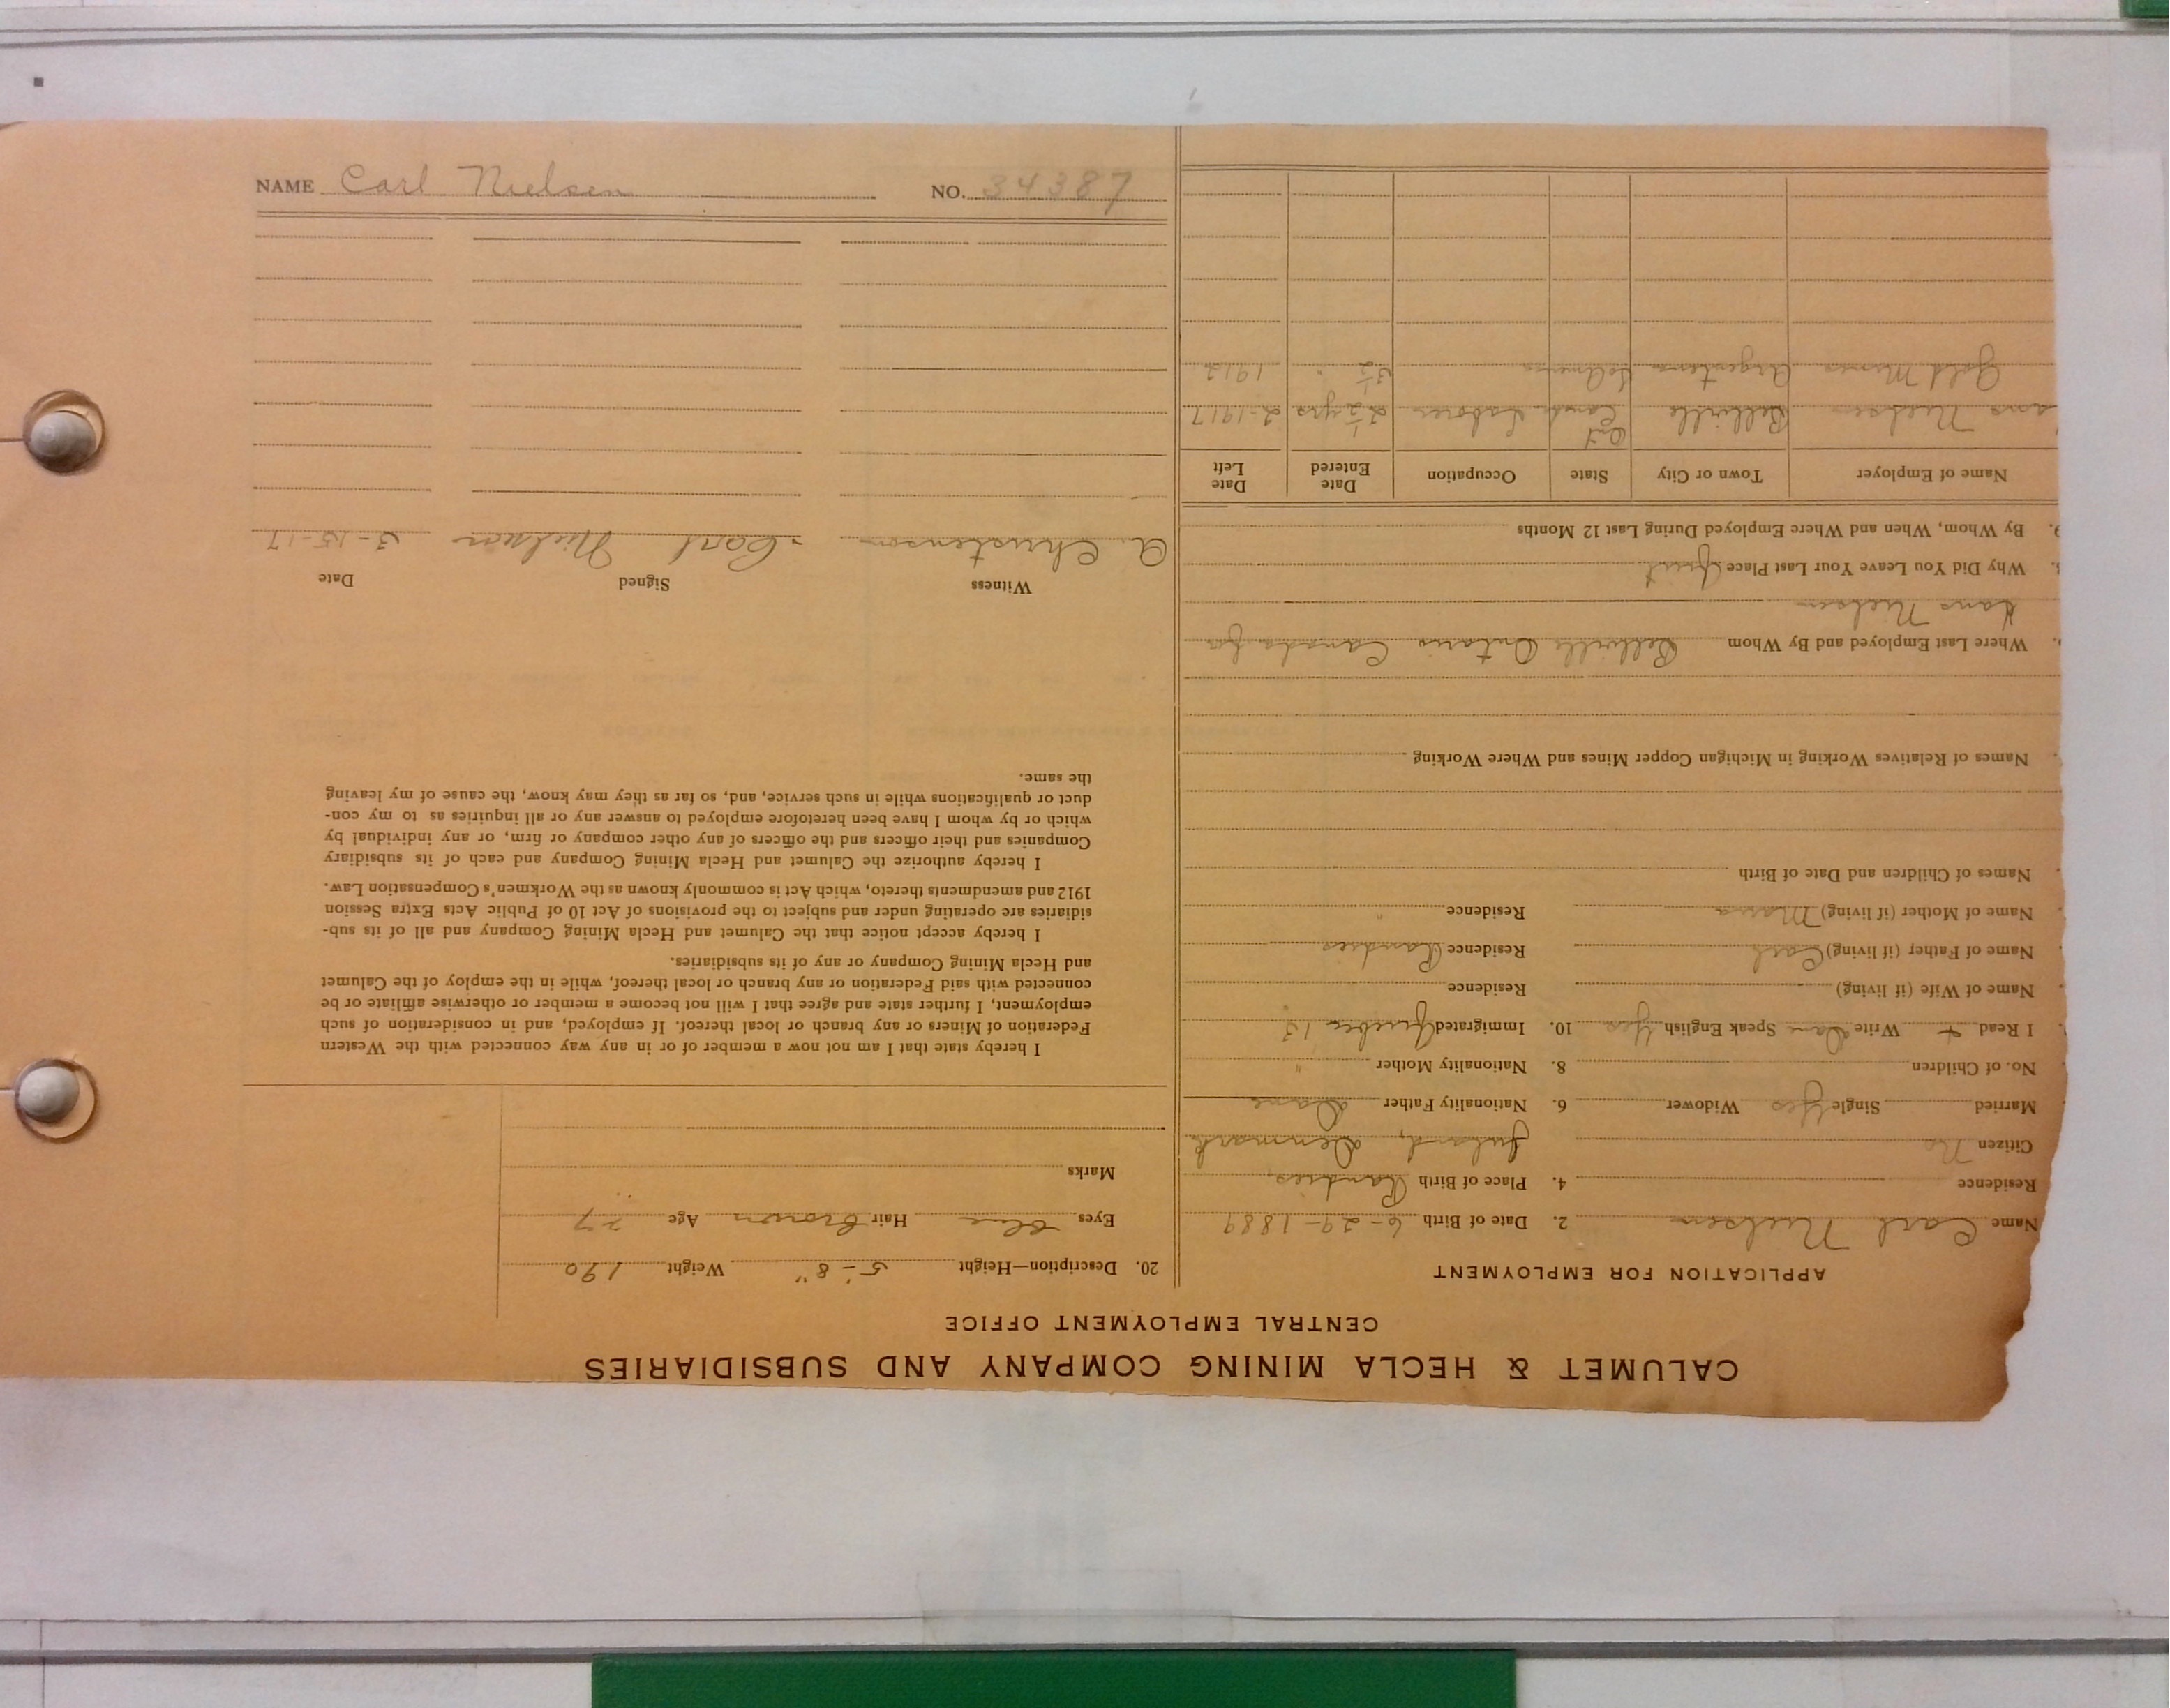 NAME Carl Nielsen NO. 34387
CALUMET & HECLA MINING COMPANY AND SUBSIDIARIES
CENTRAL EMPLOYMENT OFFICE
APPLICATION FOR EMPLOYMENT
Name Carl Nielsen 2. Date of Birth 6-29-1889
Residence 4. Place of Birth Randers,
Citizen No Juland, Denmark
Married Single Yes Widower 6. Nationality Father Dane
No. of Children 8. Nationality Mother "
I Read + Write Dane Speak English Yes 10. Immigrated Quebec 13
Name of Wife (if living) Residence
Name of Father (if living) Carl Residence Randers
Name of Mother (if living) Maria Residence "
Names of Children and Date of Birth
Names of Relatives Working in Michigan Copper Mines and Where Working
Where Last Employed and By Whom Bellville Ontario Canada for
Hans Nielsen
Why Did You Leave Your Last Place Quit
9. By Whom, When and Where Employed During Last 12 Months
Name of Employer Town or City State Occupation Date Entered Date Left
ans Nielsen Bellville Ont Can Laborer 2½ yrs 2-1917
Gold Mines Argentina So America 3½ " 1912
20. Description—Height 5'-8" Weight 190
Eyes blue Hair brown Age 27
Marks
I hereby state that I am not now a member of or in any way connected with the Western
Federation of Miners or any branch or local thereof. If employed, and in consideration of such
employment, I further state and agree that I will not become a member or otherwise affiliate or be
connected with said Federation or any branch or local thereof, while in the employ of the Calumet
and Hecla Mining Company or any of its subsidiaries.
I hereby accept notice that the Calumet and Hecla Mining Company and all of its sub-
sidiaries are operating under and subject to the provisions of Act 10 of Public Acts Extra Session
1912 and amendments thereto, which Act is commonly known as the Workmen's Compensation Law.
I hereby authorize the Calumet and Hecla Mining Company and each of its subsidiary
Companies and their officers and the officers of any other company or firm, or any individual by
which or by whom I have been heretofore employed to answer any or all inquiries as to my con-
duct or qualifications while in such service, and, so far as they may know, the cause of my leaving
the same.
Witness Signed Date
A. Christensen Carl Nielsen 3-15-17